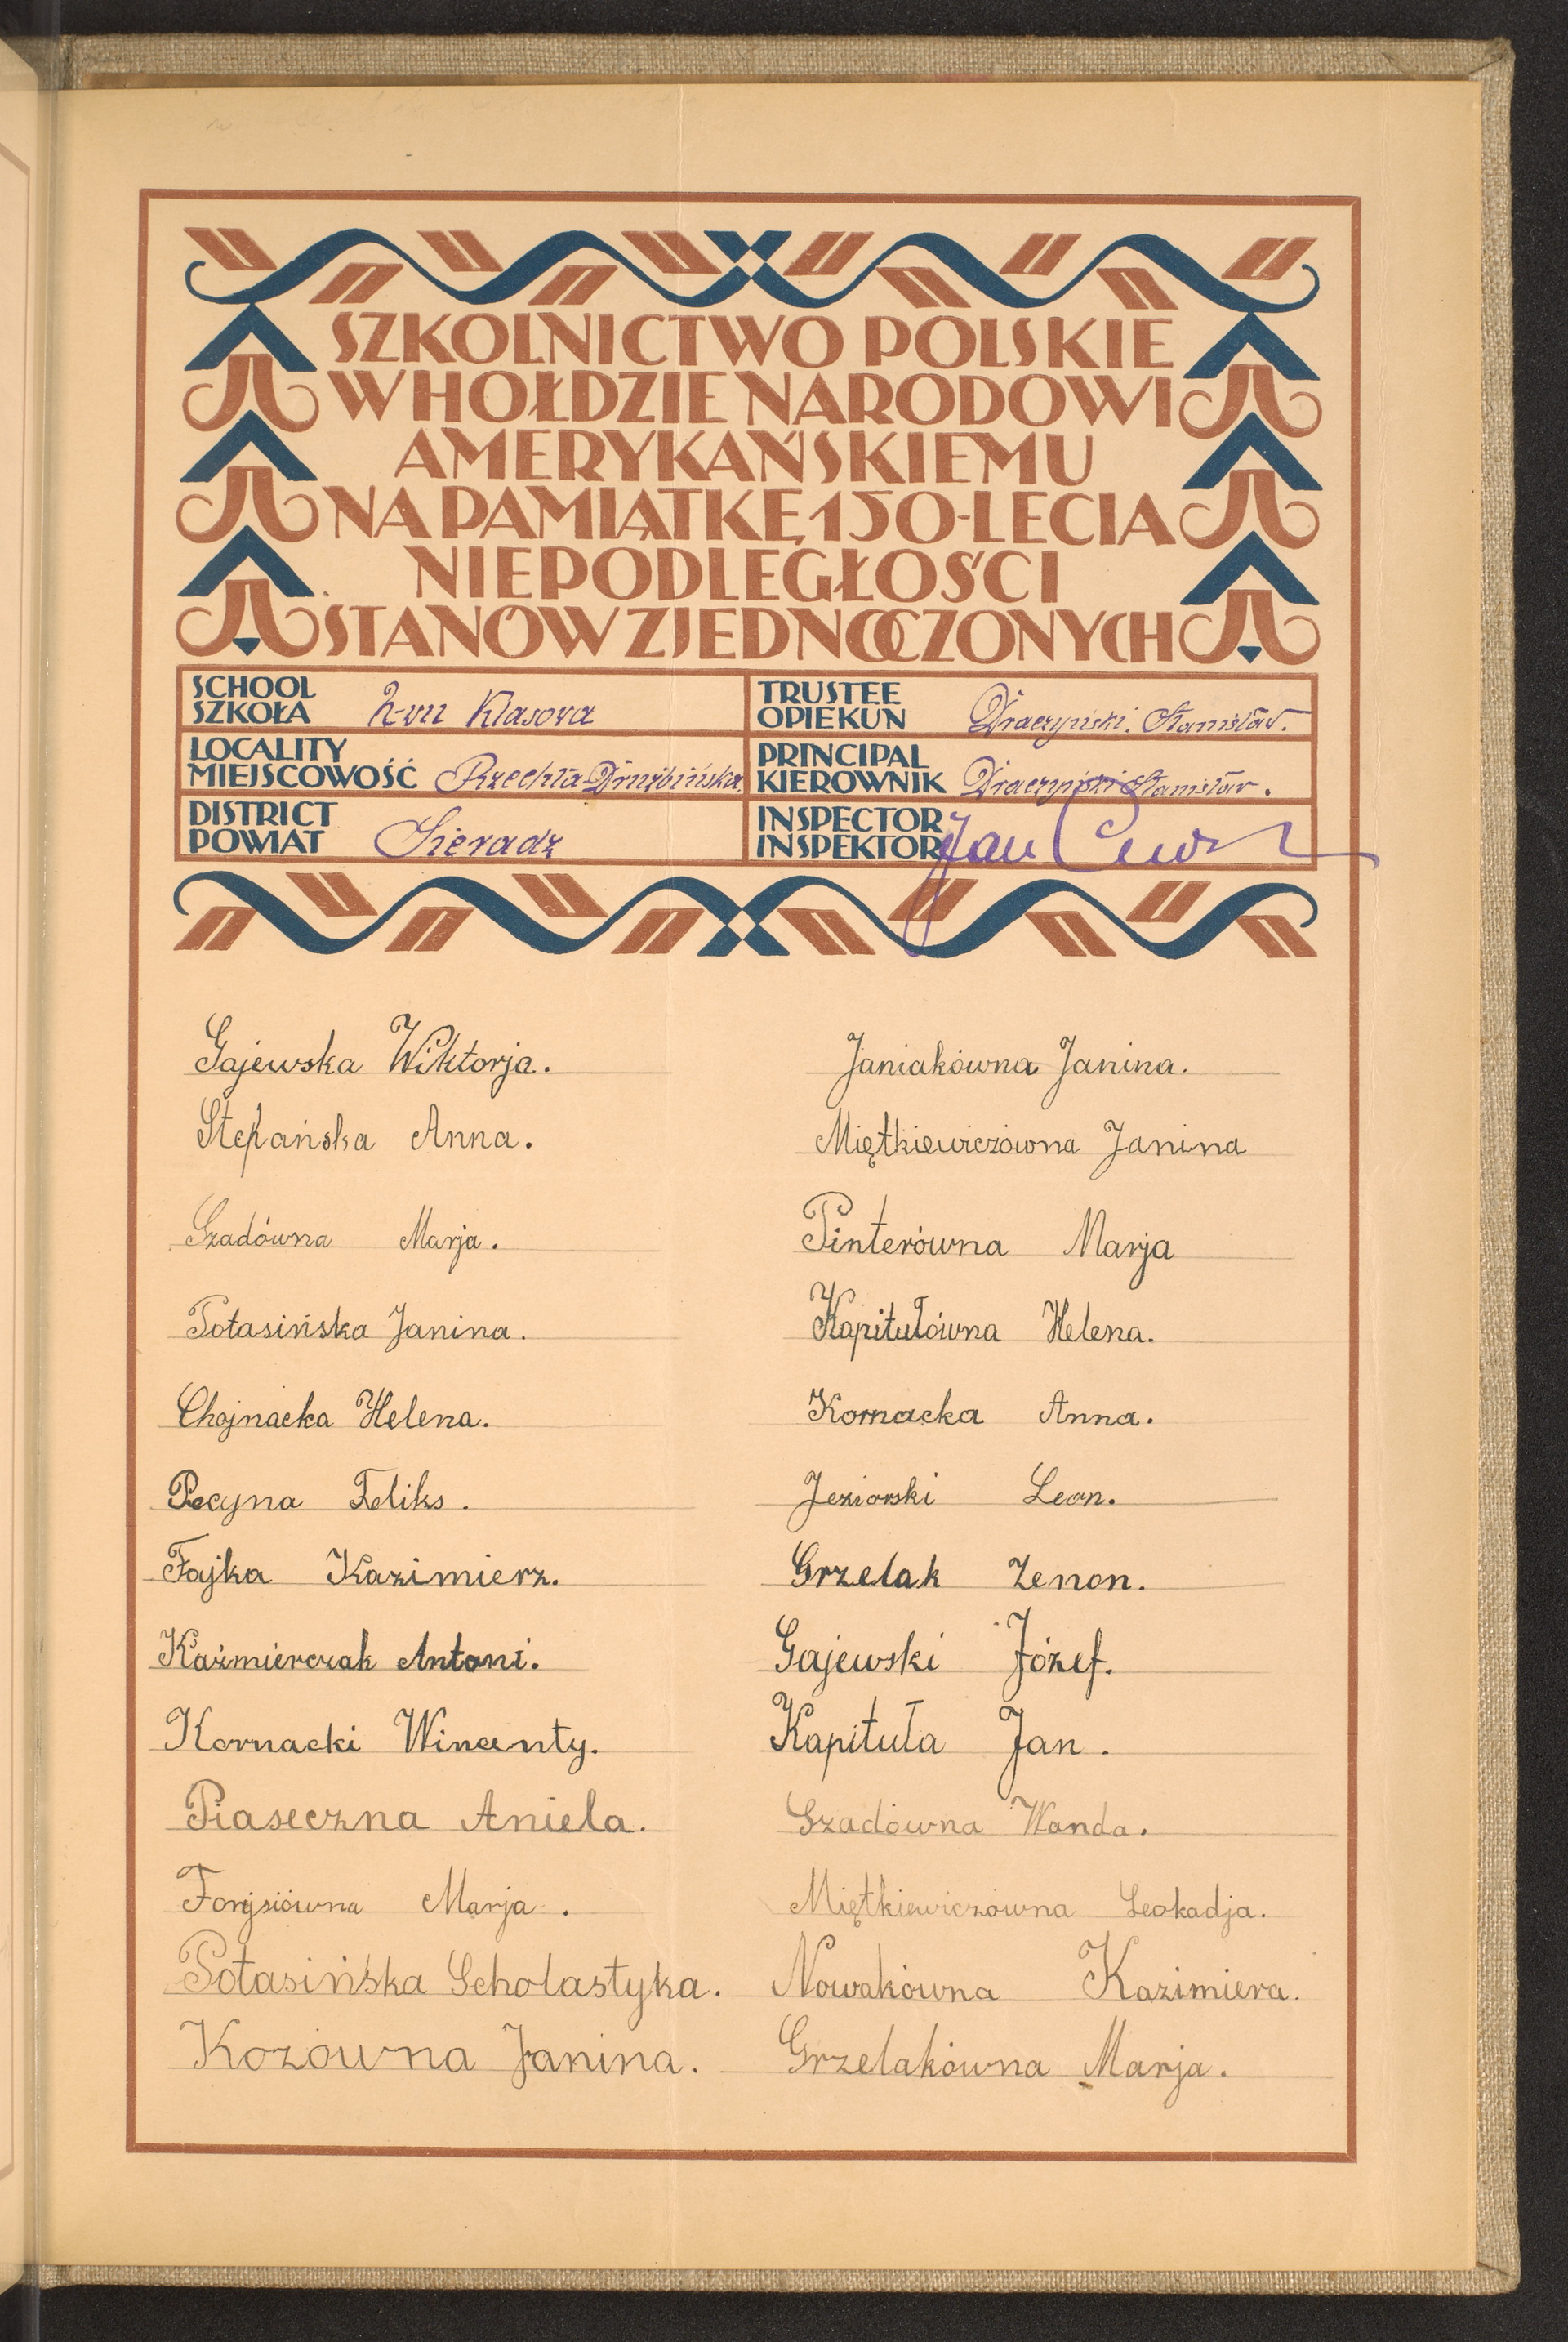 SZKOLNICTWO POLSKIE
W HOŁDZIE NARODOWI
AMERYKAŃSKIEMU
NA PAMIĄTKĘ 150-LECIA
NIEPODLEGŁOŚCI
STANÓW ZJEDNOCZONYCH
SCHOOL
SZKOŁA 2-wu Klasowa
TRUSTEE
OPIEKUN Draczyński Stanisław.
LOCALITY
MIEJSCOWOŚĆ Rzechta-Drużbińska
PRINCIPAL
KIEROWNIK Draczyński Stanisław.
DISTRICT
POWIAT Sieradz
INSPECTOR
INSPEKTOR Jan
Gajewska Wiktorja.
Stefańska Anna.
Szadówna Marja.
Potasińska Janina.
Chojnacka Helena.
Pecyna Feliks.
Fajka Kazimierz.
Kaźmierczak Antoni.
Kornacki Wincenty.
Piaseczna Aniela.
Forysiówna Marja.
Potasińska Scholastyka.
Kozówna Janina.
Janiakówna Janina.
Miętkiewiczówna Janina
Pinterówna Marja
Kapitułówna Helena.
Kornacka Anna.
Jeziorski Leon.
Grzelak Zenon.
Gajewski Józef.
Kapituła Jan.
Szadówna Wanda.
Miętkiewiczówna Leokadja.
Nowakówna Kazimiera.
Grzelakówna Marja.